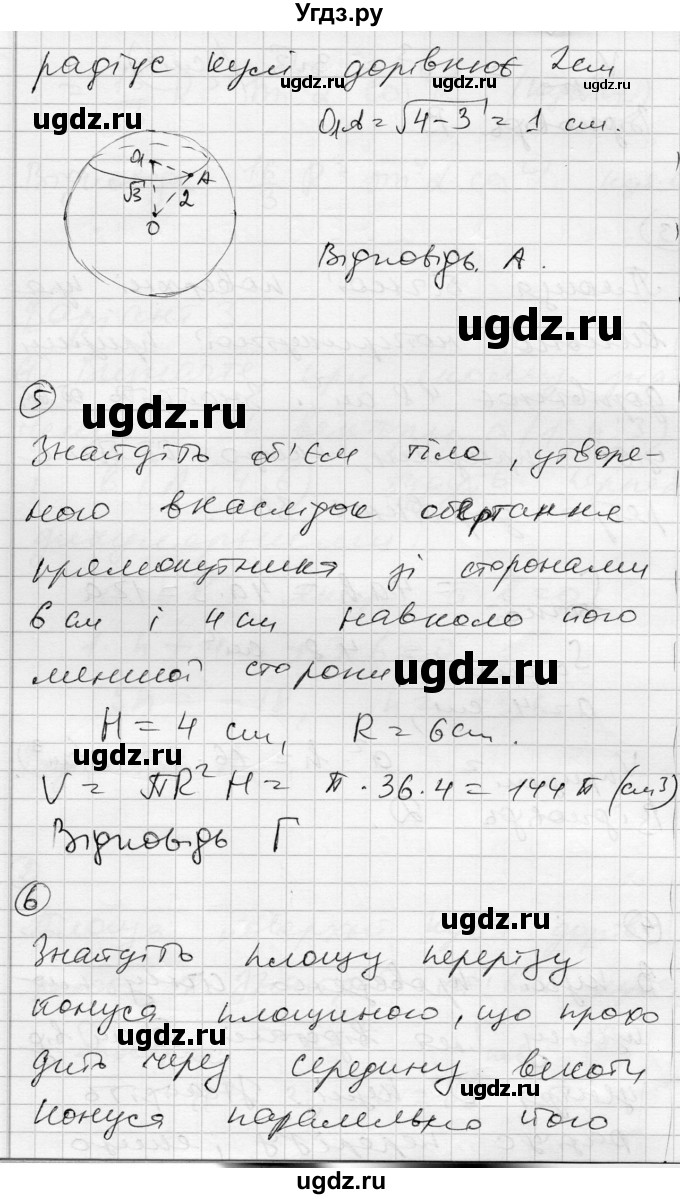 Угдз.ру
радіус кулі дорівнює 2см
ugdz.ru ugdz.ru
ugdz.ru
O₁A = √4-3 = 1 см.
O₁
A
√3
2
O
Відповідь. А.
ugdz.ru
5
ugdz.ru
Знайдіть об'єм тіла, утворе-
ного внаслідок обертання
прямокутника зі сторонами
6 см і 4 см навколо його
меншої сторони
ugdz.ru
H = 4 см, R = 6 см.
ugdz.ru
V = πR² H = π · 36 · 4 = 144 π (см³)
Відповідь Г
6
ugdz.ru
Знайдіть площу перерізу
конуса площиною, що прохо
ugdz.ru
дить через середину висоти
ugdz.ru
конуса паралельно його
ugdz.ru